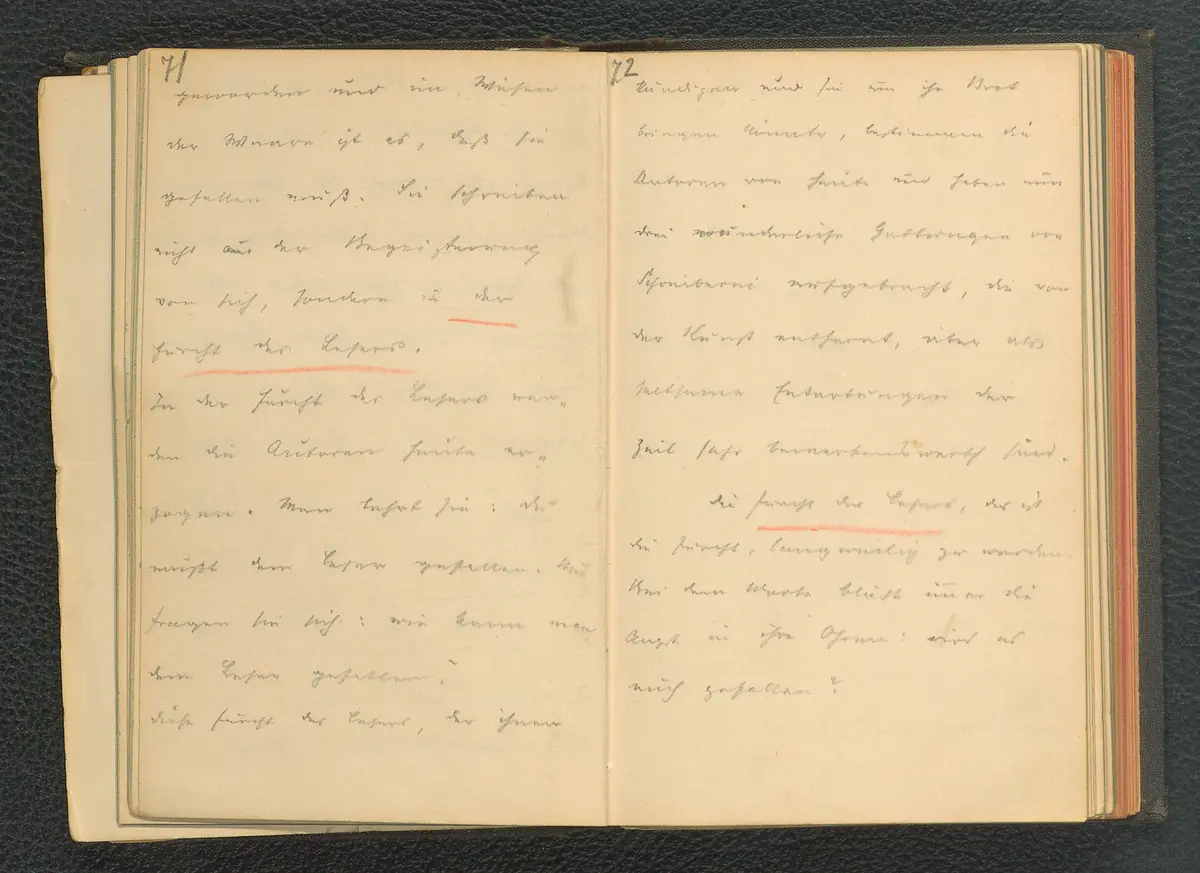 71
geworden und im Wesen
der Waare ist es, daß sie
gefallen muß. Sie schreiben
nicht aus der Begeisterung
von sich, sondern in der
Furcht des Lesers.
In der Furcht des Lesers wer-
den die Autoren heute er-
zogen. Man lehrt sie: du
mußt dem Leser gefallen. Nun
fragen sie sich: wie kann man
dem Leser gefallen?
Diese Furcht des Lesers, der ihnen
72
kündigen und sie um ihr Brot
bringen könnte, bestimmen die
Autoren von heute und haben nun
drei wunderliche Gattungen von
Schreiberei aufgebracht, die von
der Kunst entfernt, aber als
seltsame Entartungen der
Zeit sehr bemerkenswerth sind.
Die Furcht des Lesers, das ist
die Furcht, langweilig zu werden.
Bei dem Worte bläst immer die
Angst in ihre Ohren: wird es
auch gefallen?